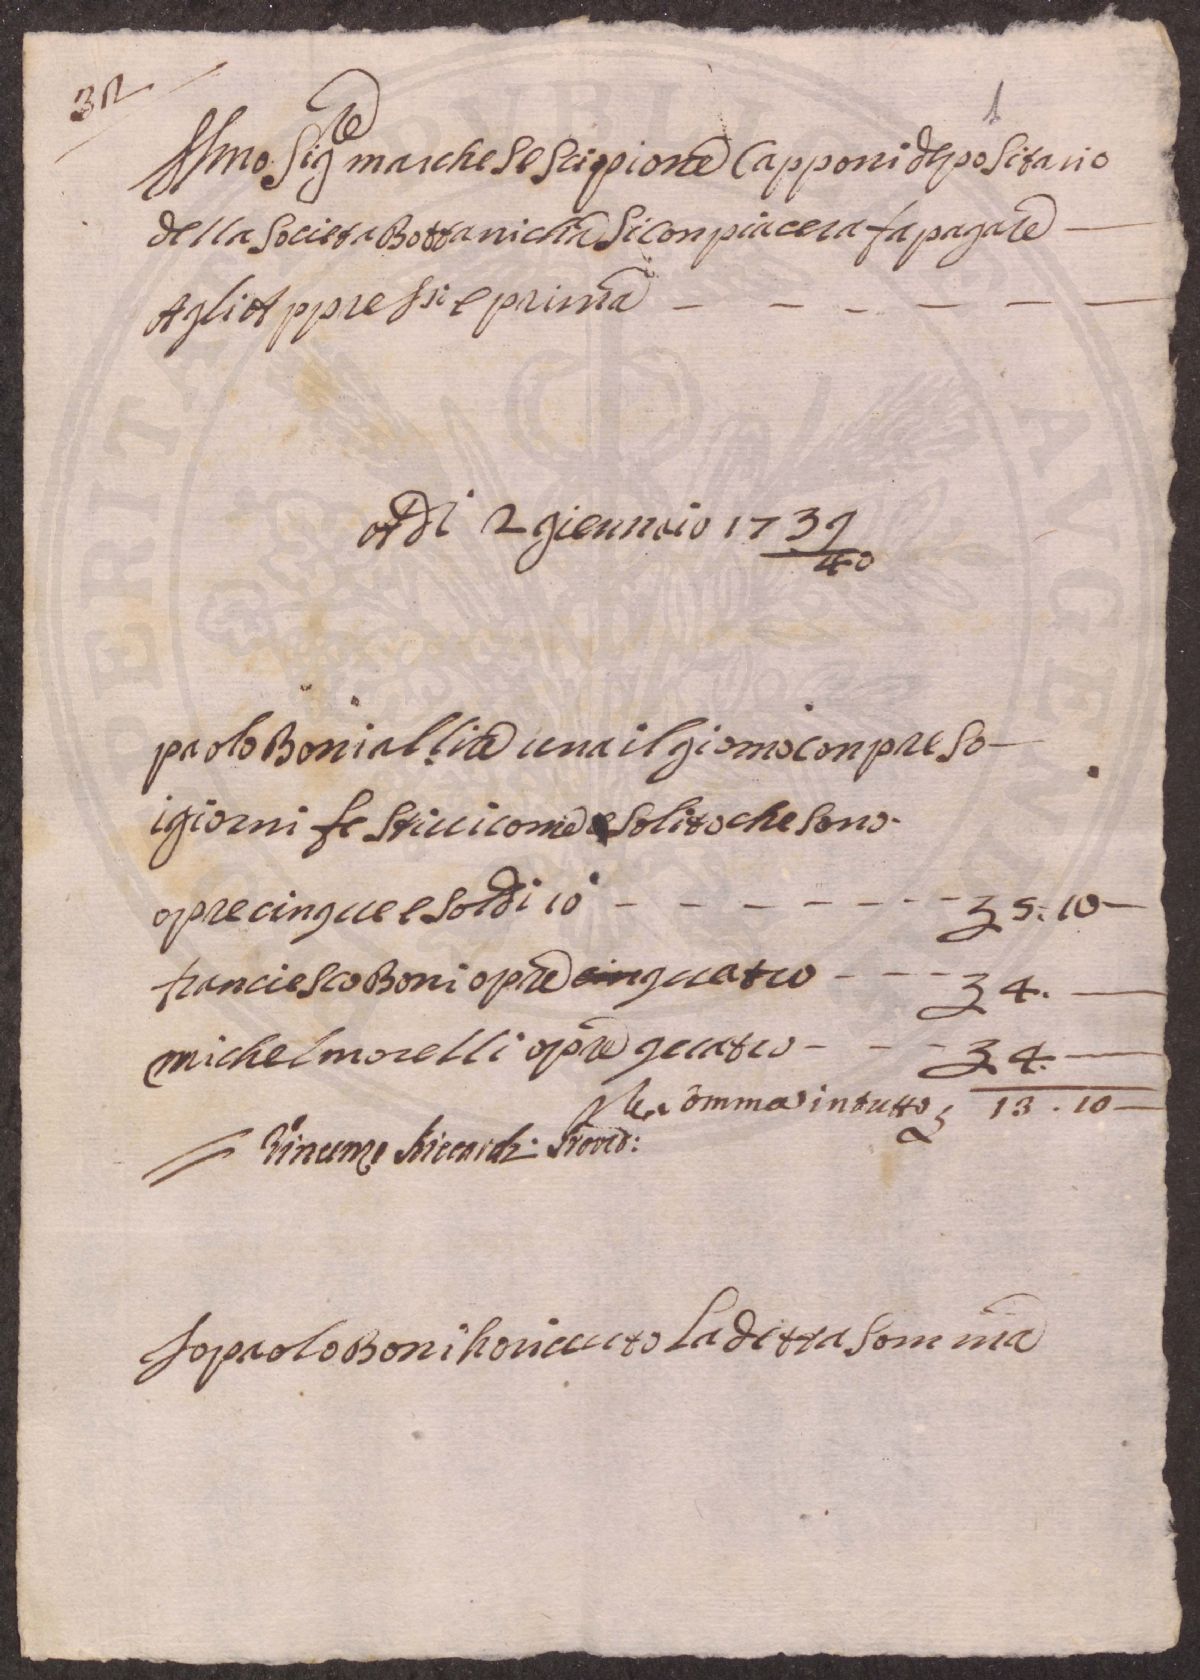 32
1
Illmo Sigre marchese Scipione Capponi depositario
della Societa Bottanicha Si conpiacera fa pagare
Agli Appressi e prima
A di 2 giennaio 1739
40
paolo Boni a llire una il giorno conpreso
i giorni festivi come e solito che sono
opre cinque e soldi 10 - - - - - - £ 5. 10
franciesco Boni opre quatro - - - £ 4.
michel morelli opre quatro - - - £ 4.
somma in tutto £ 13. 10
Vincenzo Riccardi Proved:
Io paolo Boni ho riceuto La detta Somma